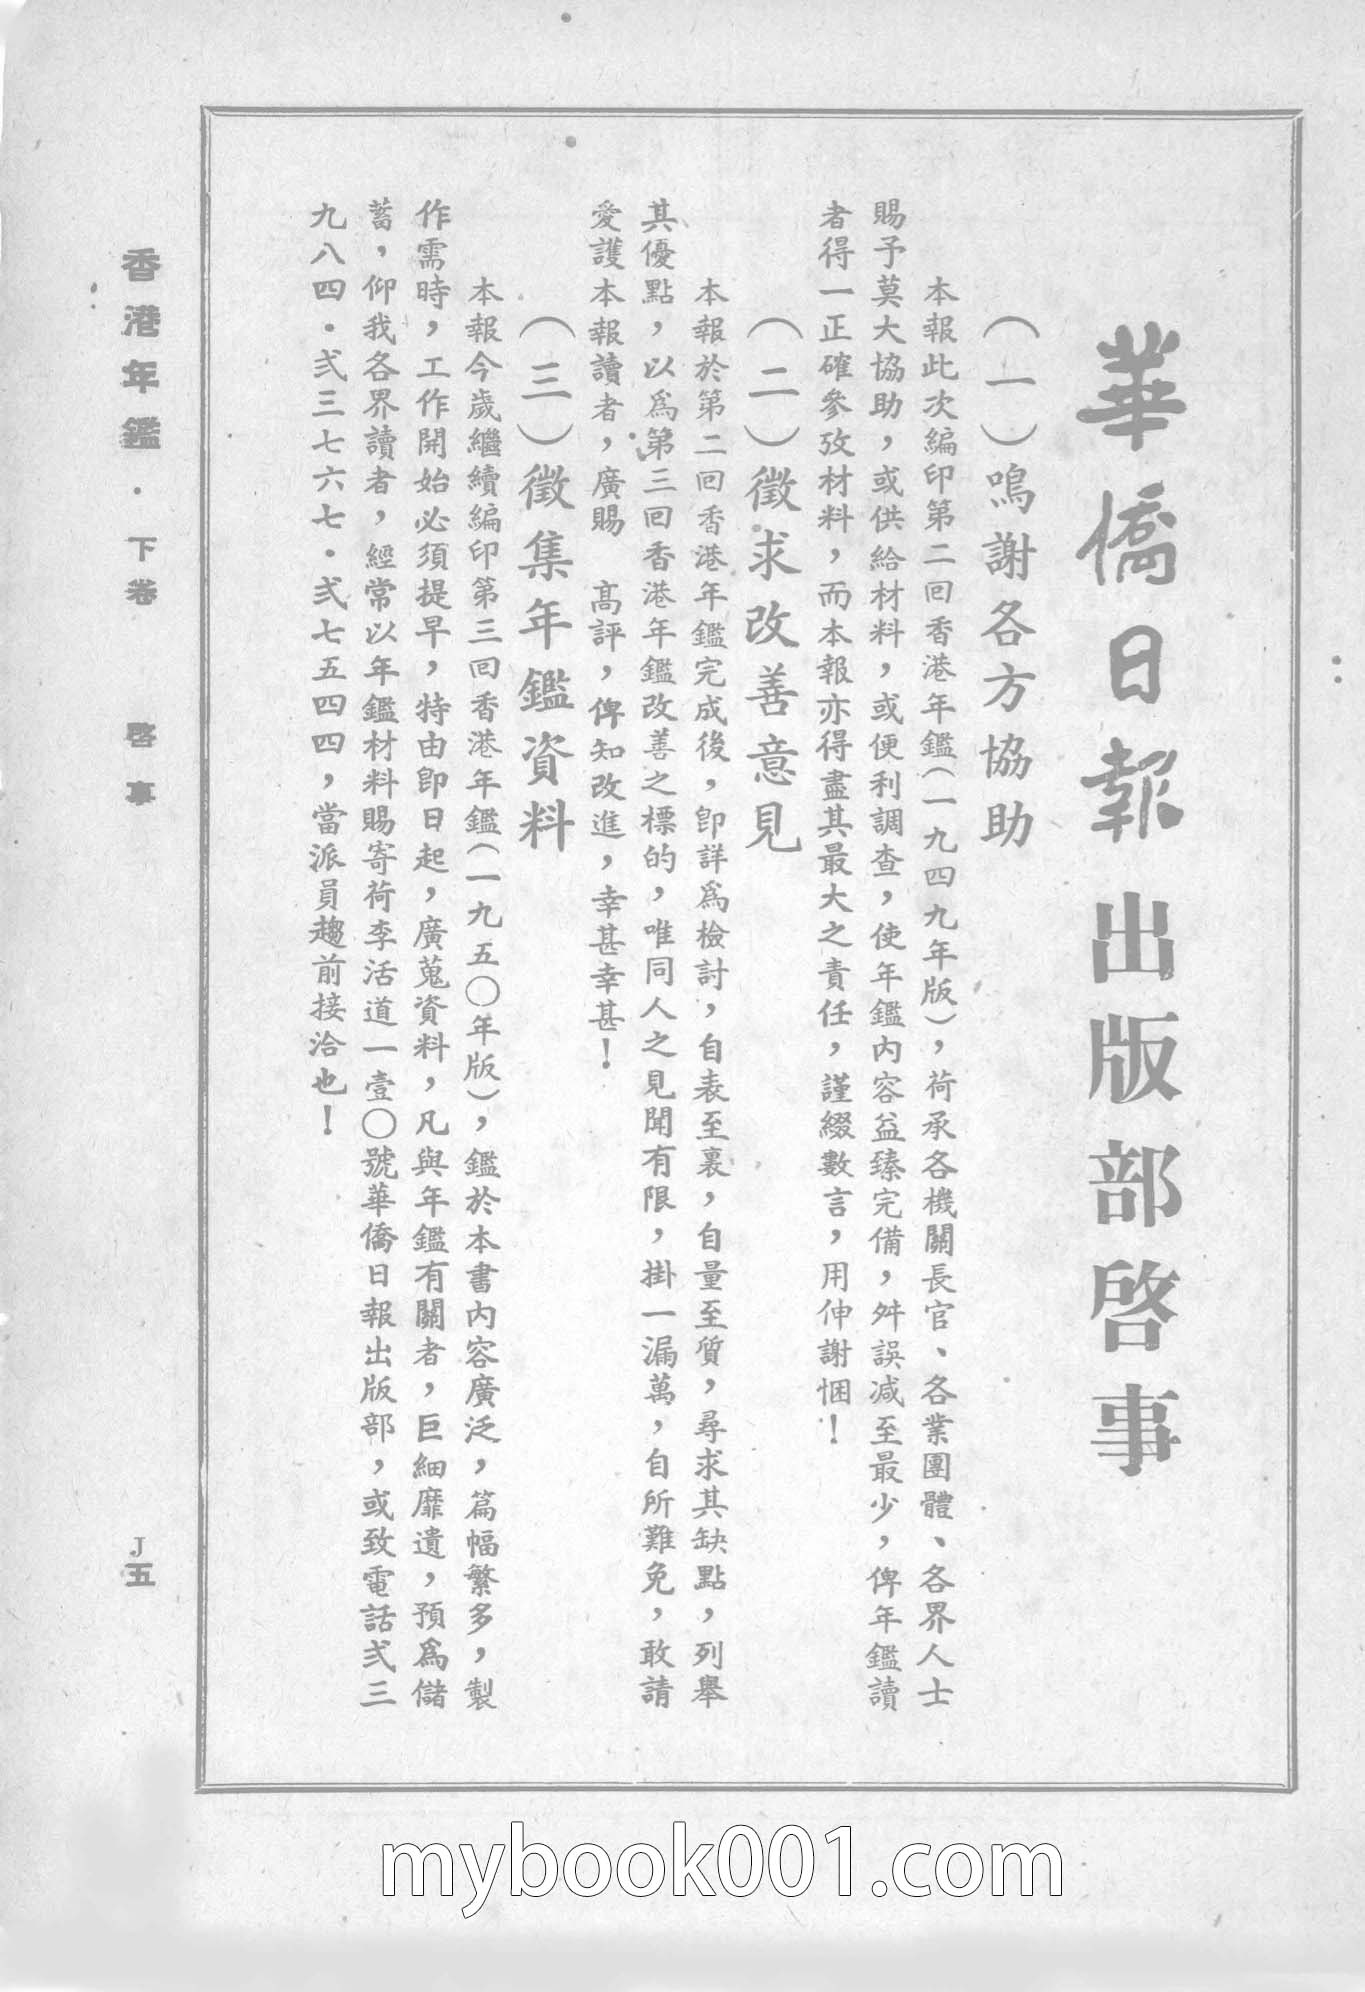 華僑日報出版部啓事
（一）鳴謝各方協助
本報此次編印第二回香港年鑑（一九四九年版），荷承各機關長官、各業團體、各界人士
賜予莫大協助，或供給材料，或便利調查，使年鑑內容益臻完備，舛誤減至最少，俾年鑑讀
者得一正確參攷材料，而本報亦得盡其最大之責任，謹綴數言，用伸謝悃！
（二）徵求改善意見
本報於第二回香港年鑑完成後，卽詳爲檢討，自表至裏，自量至質，尋求其缺點，列舉
其優點，以爲第三回香港年鑑改善之標的，唯同人之見聞有限，掛一漏萬，自所難免，敢請
愛護本報讀者，廣賜　高評，俾知改進，幸甚幸甚！
（三）徵集年鑑資料
本報今歲繼續編印第三回香港年鑑（一九五〇年版），鑑於本書內容廣泛，篇幅繁多，製
作需時，工作開始必須提早，特由卽日起，廣蒐資料，凡與年鑑有關者，巨細靡遺，預爲儲
蓄，仰我各界讀者，經常以年鑑材料賜寄荷李活道一壹〇號華僑日報出版部，或致電話弍三
九八四．弍三七六七．弍七五四四，當派員趨前接洽也！
香港年鑑．下卷　啓事　J五
mybook001.com